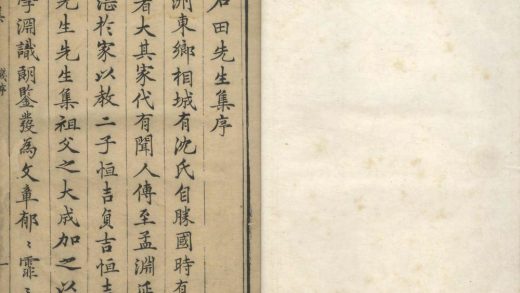 石田先生集序
洲東鄉相城有沈氏自勝國時有
者大其家代有聞人傳至孟淵延
於家以教二子恒吉貞吉恒吉
先生先生集祖父之大成加之以
學淵識朗鑒發為文章郁〻霏〻